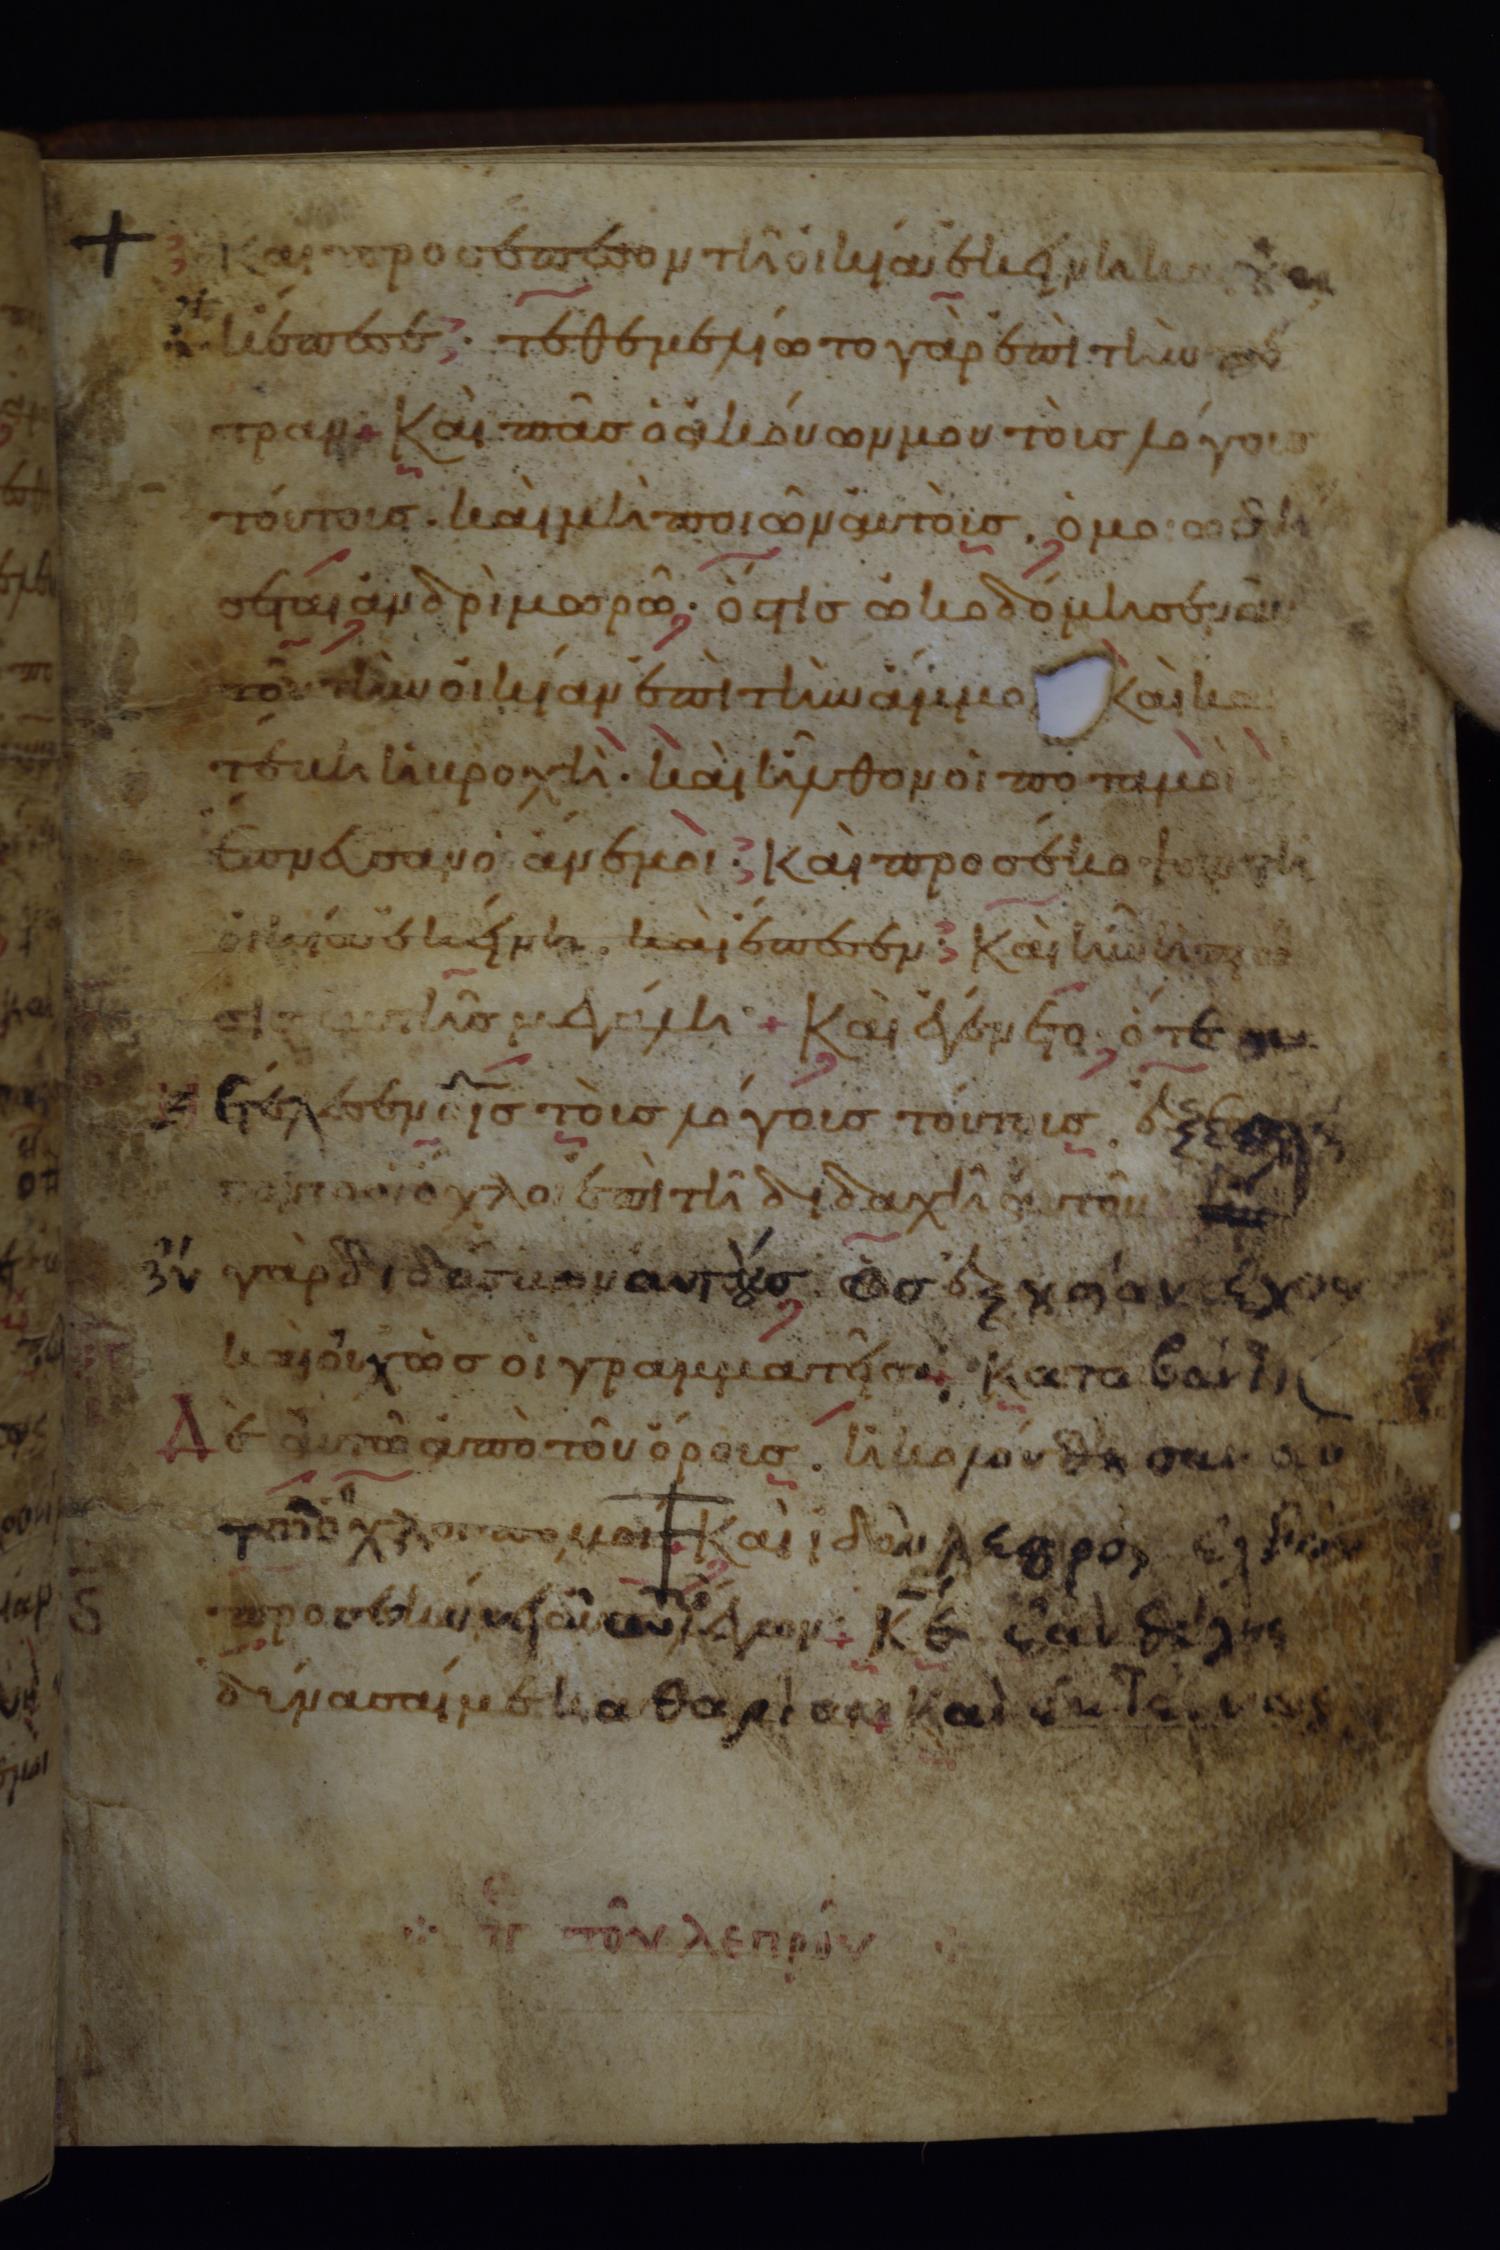 Και προσεπεσον τῆ οἰκία ἐκείνη κ οὐκ
ἔπεσε· τεθεμελίωτο γὰρ ἐπὶ τὴν πέ
τραν + Καὶ πᾶσ ὁ ἀκούων μου τοὺσ λόγουσ
τούτουσ. καὶ μὴ ποιῶν ἀυτοὺσ. ὁμοιωθή
σεται ἀνδρὶ μωρῶ. ὅστισ ὠκοδόμησεν ἀυ
τοῦ τὴν οἰκίαν ἐπὶ τὴν ἄμμον Καὶ κα
τέβη ἡ βροχὴ. καὶ ἦλθον οἱ ποταμοὶ
ἔπνευσαν οἱ ἄνεμοι· Καὶ προσέκοψαν τῆ
οἰκία ἐκείνη. καὶ ἔπεσεν· Καὶ ἦν ἡ πτῶ
σισ αυτῆσ μεγάλη + Καὶ ἐγένετο. ὅτε συ
ετέλεσεν ὁ ισ τοὺσ λόγουσ τούτουσ. ἐξεπλή
σσοντο οἱ ὄχλοι ἐπὶ τῆ διδαχῆ ἀυτοῦ
ἦν γὰρ διδάσκων αυτούσ ὡσ ἐξουσίαν ἔχων
καὶ οὐχ ὡσ οἱ γραμματεῖσ + Καταβάντι
Δὲ ἀυτῶ ἀπὸ τοῦ ὄρουσ. ἠκολούθησαν αυ
τῶ ὄχλοι πολλοι + Καὶ ἰδοὺ λεπρὸς ἐλθὼν
προσεκύνει αυτῶ λέγων + Κε ἐὰν θέλης
δύνασαί με καθαρίσαι + Καὶ ἐκτείνας
τὸν λεπρόν